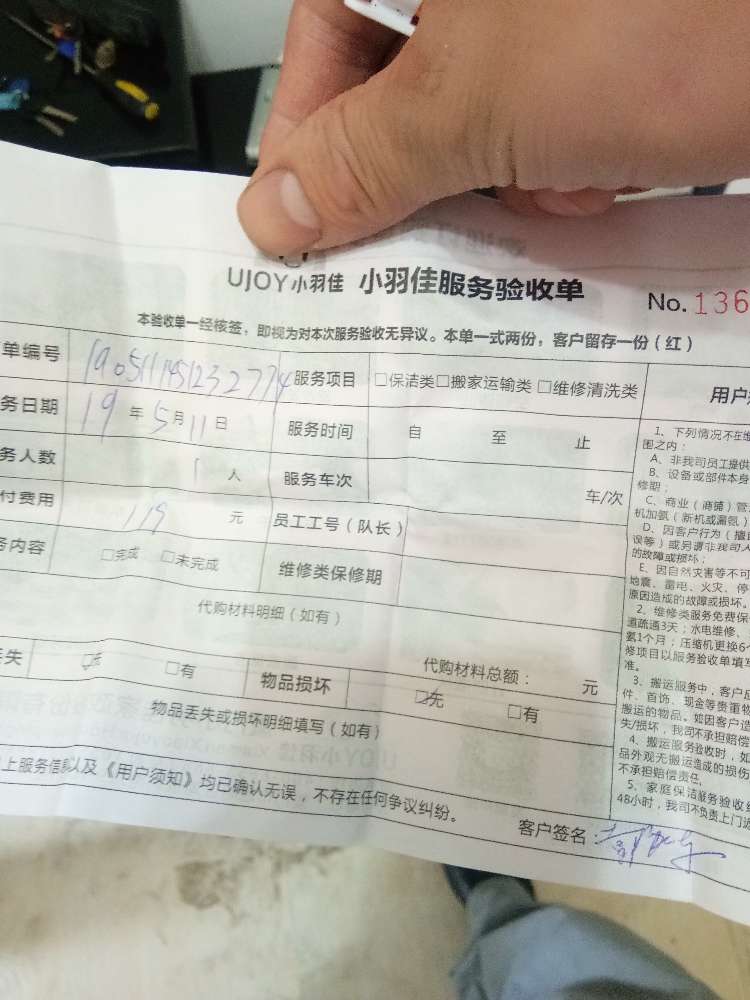 UJOY小羽佳 小羽佳服务验收单
No. 136
本验收单一经核签，即视为对本次服务验收无异议。本单一式两份，客户留存一份（红）
单编号 服务项目 □保洁类□搬家运输类 □维修清洗类
务日期 19 年 5 月 11 日 服务时间 自 至 止
务人数 1 人 服务车次 车/次
付费用 119 元 员工工号（队长）
务内容 □完成 □未完成 维修类保修期
代购材料明细（如有）
代购材料总额： 元
丢失 □无 □有 物品损坏 □无 □有
物品丢失或损坏明细填写（如有）
上服务信息以及《用户须知》均已确认无误，不存在任何争议纠纷。
客户签名：
用户
1、下列情况不在维
围之内：
A、非我司员工提供
B、设备或部件本身
修期；
C、商业（商铺）管
机加氨（新机或漏氨）
D、因客户行为（擅
误等）或另请非我司人
的故障或损坏；
E、因自然灾害等不可
地震、雷电、火灾、停
原因造成的故障或损坏。
2、维修类服务免费保
道疏通3天；水电维修、
氨1个月；压缩机更换6个
修项目以服务验收单填写
准。
3、搬运服务中，客户
件、首饰、现金等贵重物
搬运的物品。如因客户造
失/损坏，我司不承担赔偿
4、搬运服务验收时，如
品外观无搬运造成的损伤
不承担赔偿责任。
5、家庭保洁服务验收
48小时，我司不负责上门